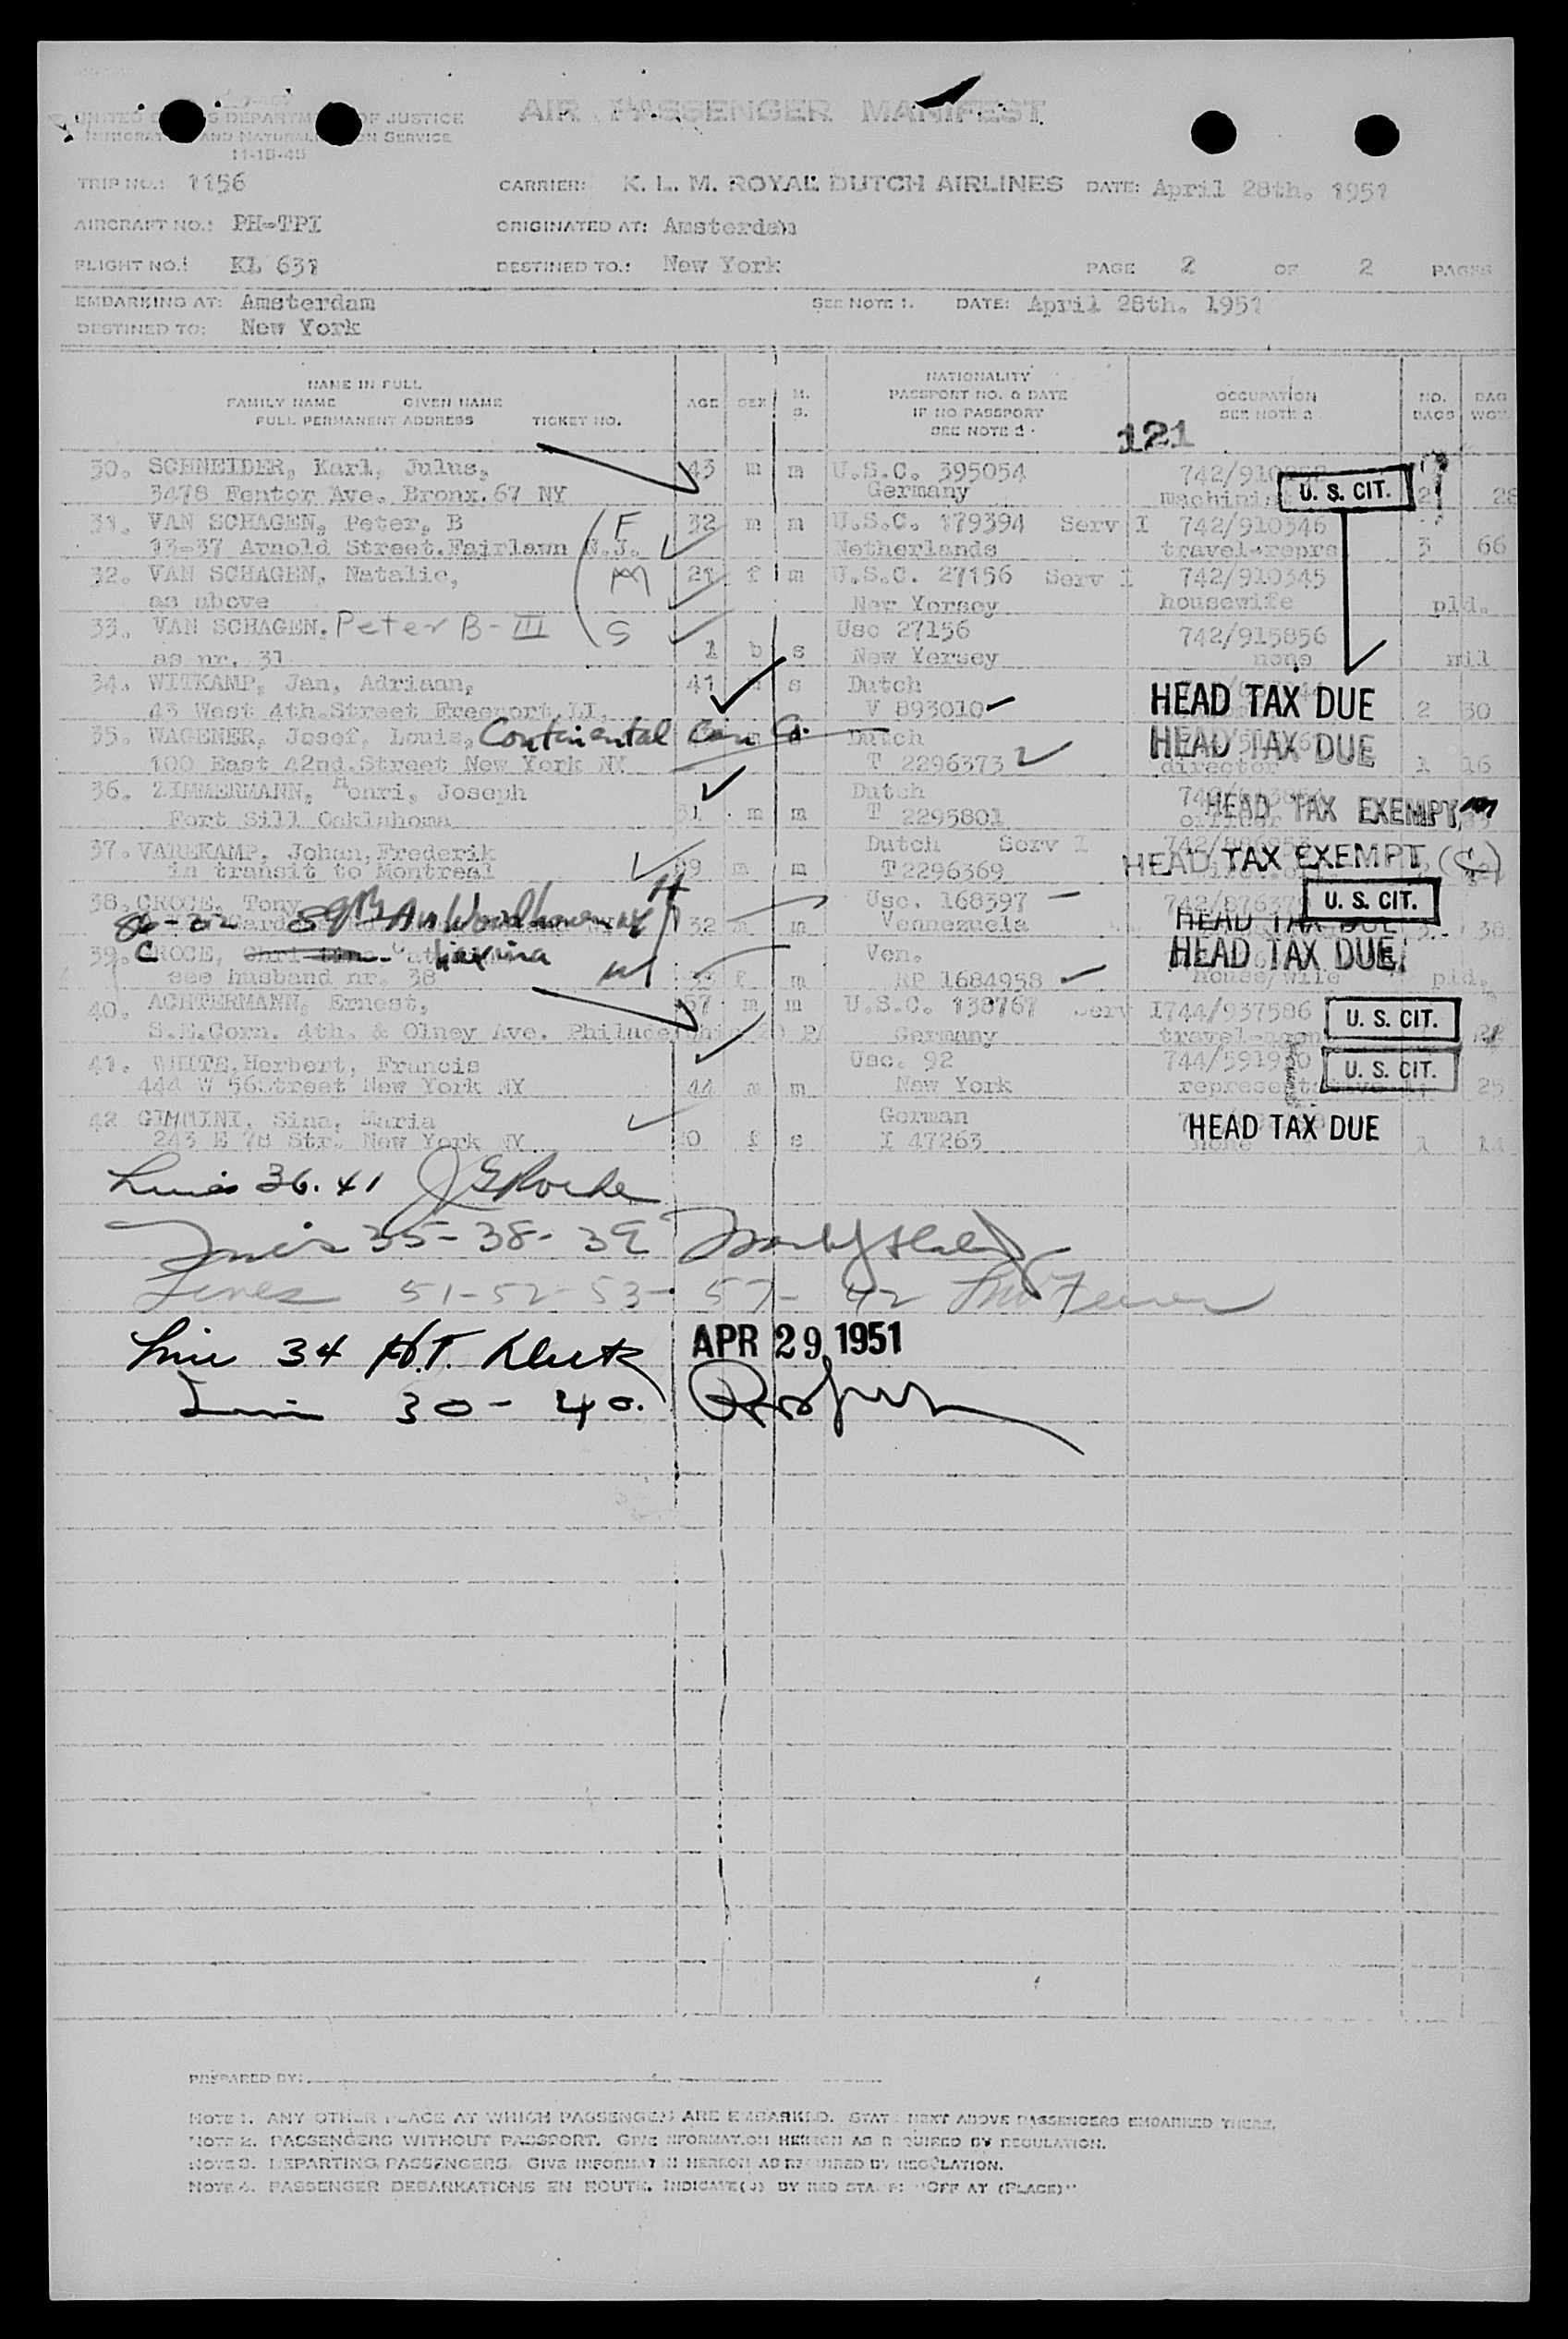 UNITED DEPARTM OF JUSTICE
AND NATURAL SERVICE
11-15-48
AIR PASSENGER MANIFEST
TRIP NO.: 1156 CARRIER: K. L. M. ROYAL DUTCH AIRLINES DATE: April 28th. 1951
AIRCRAFT NO.: PH-TPI ORIGINATED AT: Amsterdam
FLIGHT NO.: KL 631 DESTINED TO.: New York PAGE 2 OF 2 PAGES
EMBARKING AT: Amsterdam SEE NOTE 1. DATE: April 28th. 1951
DESTINED TO: New York
NAME IN FULL
FAMILY NAME GIVEN NAME
FULL PERMANENT ADDRESS TICKET NO.
AGE SEX M. S.
NATIONALITY
PASSPORT NO. & DATE
IF NO PASSPORT
SEE NOTE 2
OCCUPATION
SEE NOTE 2
NO. BAGS BAG WGT.
121
30. SCHNEIDER, Karl, Julus, 43 m m U.S.C. 395054
3478 Fentor Ave. Bronx.67 NY Germany machinist U. S. CIT. 2 28
31. VAN SCHAGEN, Peter, B F 32 m m U.S.C. 179394 Serv I 742/910346
13-37 Arnold Street.Fairlawn N.J. Netherlands travel-reprs 3 66
32. VAN SCHAGEN, Natalie, M 21 f m U.S.C. 27156 Serv I 742/910345
as above New Yersey housewife pld.
33. VAN SCHAGEN. Peter B-III S Usc 27156 742/915856
as nr. 31 1 b s New Yersey none nil
34. WITKAMP, Jan, Adriaan, 41 s Dutch HEAD TAX DUE
43 West 4th.Street Freeport LI. V 893010 2 30
35. WAGENER, Josef, Louis, Continental Can Co. Dutch HEAD TAX DUE
100 East 42nd.Street New York NY T 2296373 director 1 16
36. ZIMMERMANN, Henri, Joseph Dutch HEAD TAX EXEMPT
Fort Sill Oaklahoma 31 m m T 2295801
37. VAREKAMP, Johan, Frederik Dutch Serv I HEAD TAX EXEMPT
in transit to Montreal m m T 2296369
38. CROCE, Tony H Usc. 168397 742/87637 U. S. CIT.
86-02 Woodhaven NY 32 m m Vennezuela HEAD TAX DUE 38
39. CROCE, Ven. HEAD TAX DUE
see husband nr. 38 W f m RP 1684958 house/wife pld.
40. ACHTERMANN, Ernest, 57 m m U.S.C. 138767 Serv I 744/937586 U. S. CIT.
S.E.Corn. 4th. & Olney Ave. Philadelphia 20 P Germany travel-agen
41. WHITE, Herbert, Francis Usc. 92 744/591930 U. S. CIT.
444 W 56Street New York NY 44 m m New York representative 25
42 GIMMINI, Sina, Maria German HEAD TAX DUE
243 E 78 Str. New York NY f s I 47263 none 1 14
Lines 36. 41
Lines 35-38-39
Lines 51-52-53-57-42
Line 34 H.T. APR 29 1951
Line 30-40.
PREPARED BY:
NOTE 1. ANY OTHER PLACE AT WHICH PASSENGERS ARE EMBARKED. STATE NEXT ABOVE PASSENGERS EMBARKED THERE.
NOTE 2. PASSENGERS WITHOUT PASSPORT. GIVE INFORMATION HEREON AS REQUIRED BY REGULATION.
NOTE 3. DEPARTING PASSENGERS. GIVE INFORMATION HEREON AS REQUIRED BY REGULATION.
NOTE 4. PASSENGER DEBARKATIONS EN ROUTE. INDICATE(J) BY RED STAMP: "OFF AT (PLACE)"